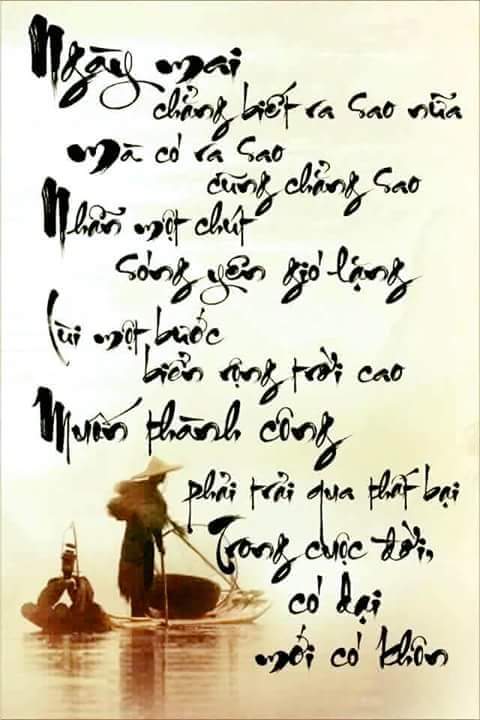 Ngày mai
chẳng biết ra sao nữa
mà có ra sao
cũng chẳng sao
Nhẫn một chút
sóng yên gió lặng
Lùi một bước
biển rộng trời cao
Muốn thành công
phải trải qua thất bại
Trong cuộc đời,
có dại
mới có khôn